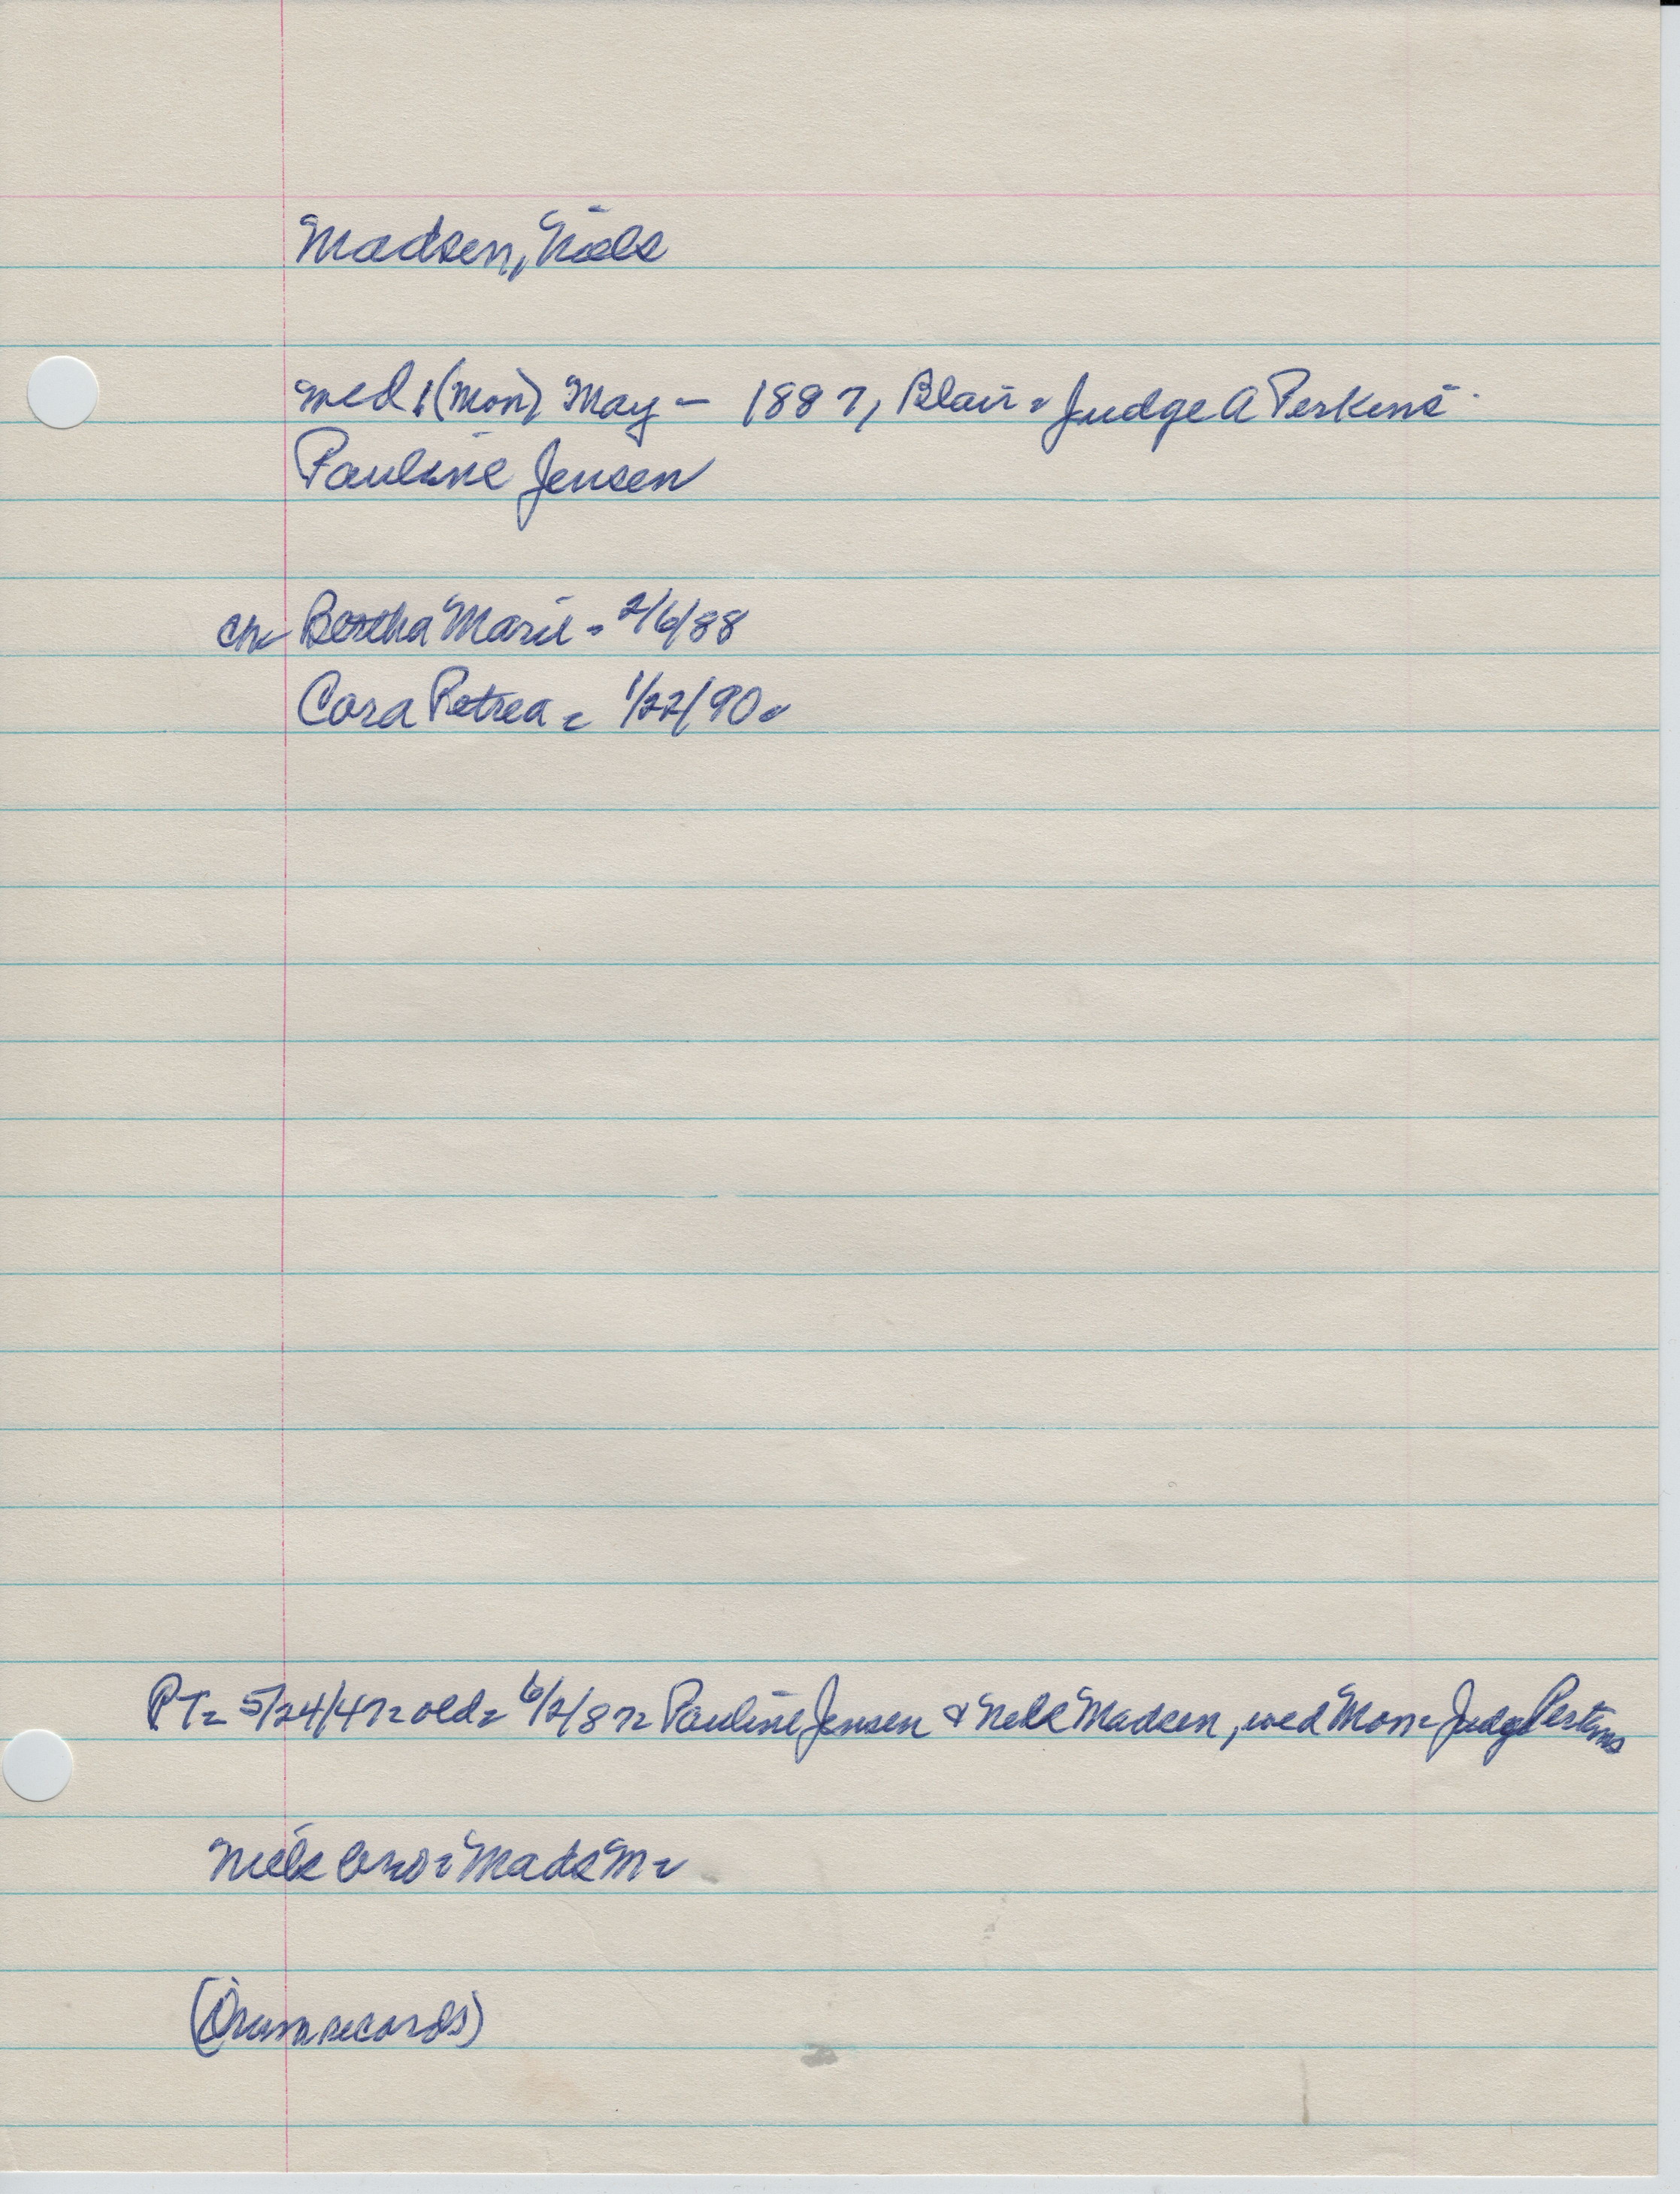 Madsen, Niels
wed, (Mon), May - 1887, Blair - Judge A Perkins.
Pauline Jensen
ch - Bertha Marie - 2/6/88
Cora Petrea - 1/22/90 -
PT - 5/24/47 - old - 6/2/87 - Pauline Jensen & Nels Madsen, wed Mon - Judge Perkins
Niels bro - Mads M -
(Orum records)